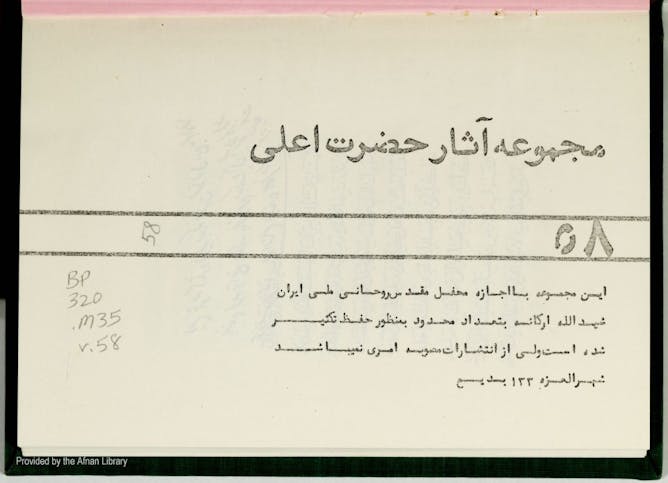 مجموعه آثار حضرت اعلی
۵۸
58
این مجموعه با اجازه محفل مقدس روحانی ملی ایران
شیدالله ارکانه بتعداد محدود بمنظور حفظ تکثیر
شده است ولی از انتشارات مصوبه امری نمیباشد
شهرالعزه ۱۳۳ بدیع
BP
320
.M35
v.58
Provided by the Afnan Library